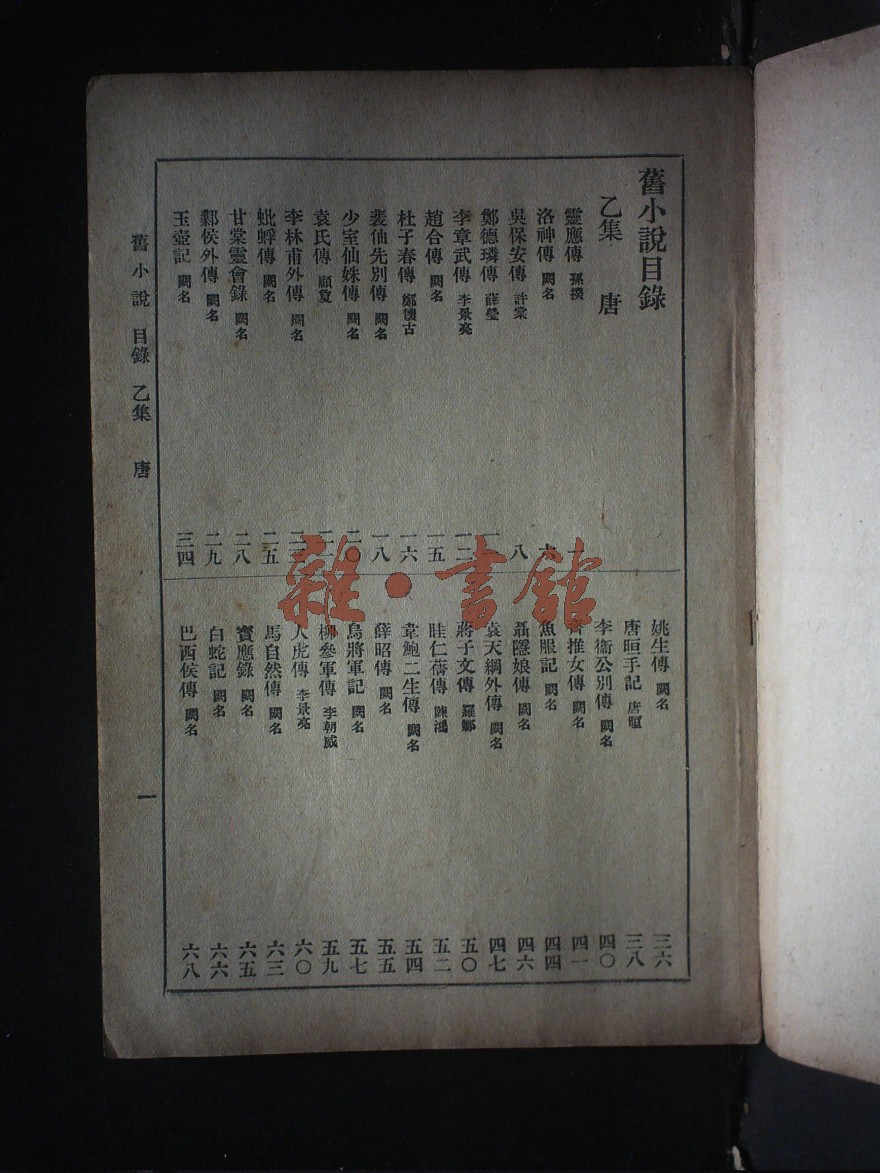 舊小說目錄
乙集 唐
靈應傳 孫揆
洛神傳 闕名
吳保安傳 許棠 八
鄭德璘傳 薛瑩
李章武傳 李景亮 一二
趙合傳 闕名 一五
杜子春傳 鄭懷古 一六
裴伷先別傳 闕名 一八
少室仙姝傳 闕名 二〇
袁氏傳 顧敻
李林甫外傳 闕名
蚍蜉傳 闕名 二五
甘棠靈會錄 闕名 二八
鄴侯外傳 闕名 二九
玉壺記 闕名 三四
姚生傳 闕名 三六
唐晅手記 唐晅 三八
李衞公別傳 闕名 四〇
齊推女傳 闕名 四一
魚服記 闕名 四四
聶隱娘傳 闕名 四六
袁天綱外傳 闕名 四七
蔣子文傳 羅鄴 五〇
睦仁蒨傳 陳鴻 五二
韋鮑二生傳 闕名 五四
薛昭傳 闕名 五五
烏將軍記 闕名 五七
柳參軍傳 李朝威 五九
人虎傳 李景亮 六〇
馬自然傳 闕名 六三
寶應錄 闕名 六五
白蛇記 闕名 六六
巴西侯傳 闕名 六八
舊小說 目錄 乙集 唐 一
雜·書館